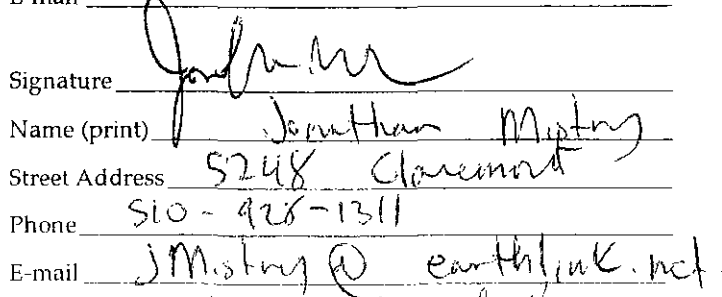 E-mail
Signature
Name (print) Jonathan Mistry
Street Address 5248 Claremont
Phone 510-
E-mail jMistry@earthlink.net